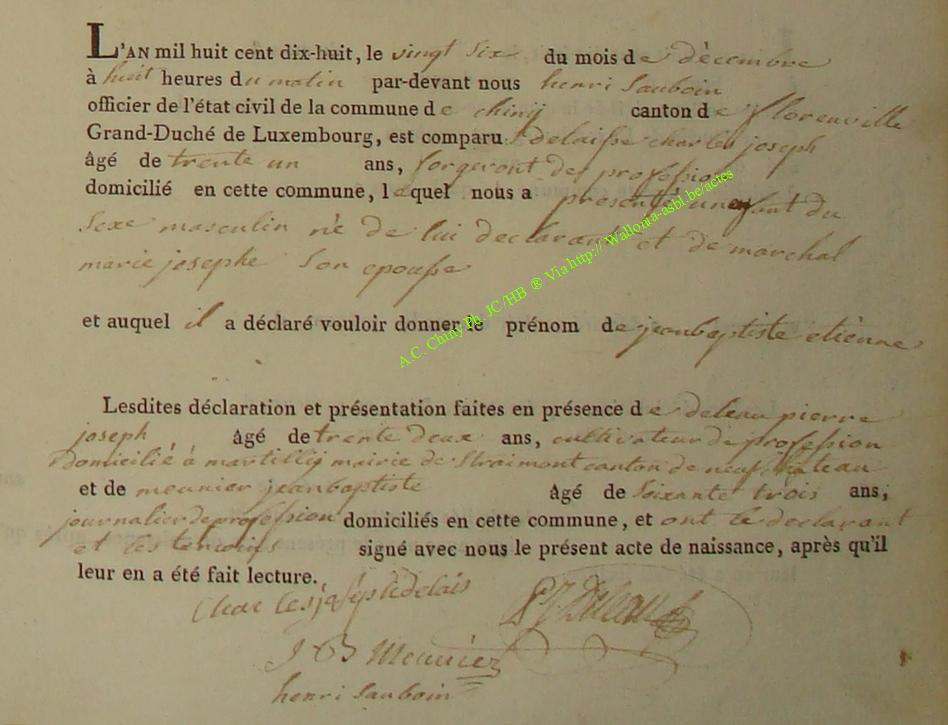 L'AN mil huit cent dix-huit, le vingt six du mois de dècembre
à huit heures du matin par-devant nous henri Sauboin
officier de l'état civil de la commune de chinij canton de florenville
Grand-Duché de Luxembourg, est comparu delaisse charles joseph
âgé de trente un ans, forgeront des profession
domicilié en cette commune, lequel nous a presenté un enfant du
Sexe masculin nè de lui declarant et de marchal
marie josephe Son epousse
et auquel il a déclaré vouloir donner le prénom de jeanbaptiste etiènne
Lesdites déclaration et présentation faites en présence de deleau pierre
joseph âgé de trente deux ans, cultivateur de profession
domicilié à martillij mairie de Straimont canton de neufchateau
et de meunier jeanbaptiste âgé de soixante trois ans,
journalier de profession domiciliés en cette commune, et ont le declarant
et les temoins signé avec nous le présent acte de naissance, après qu'il
leur en a été fait lecture.
Char les joseph delais
PJ Deleau
J B Meunier
henri Sauboin
A.C. Chiny Ph. JC/HB ® Via http://Wallonia-asbl.be/actes